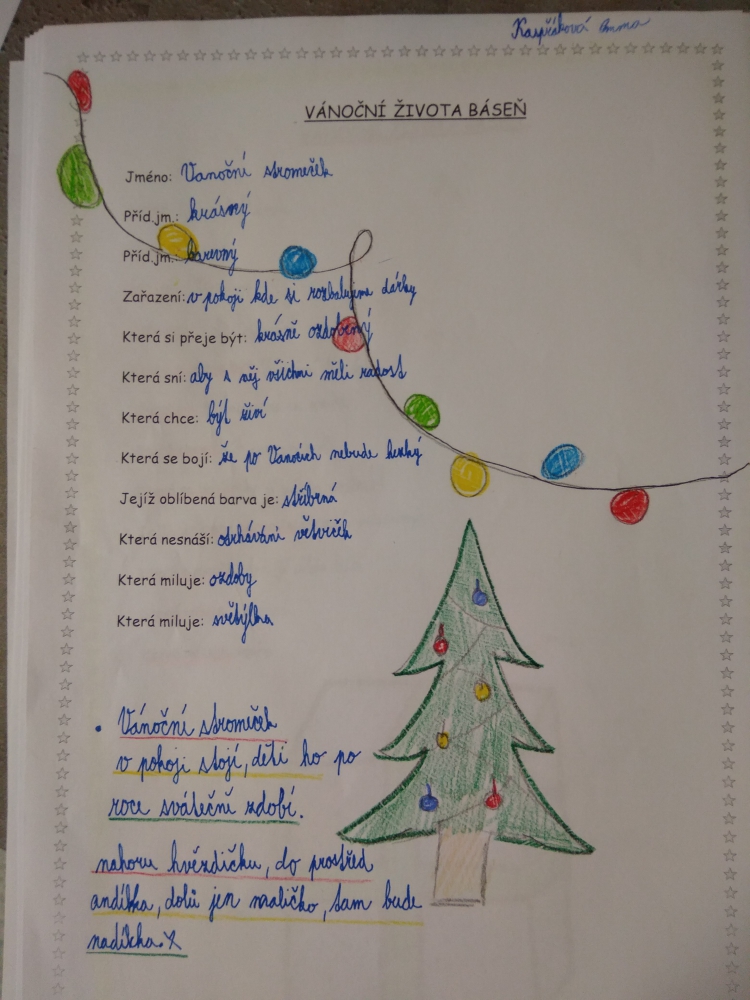 Kaspříková Emma
VÁNOČNÍ ŽIVOTA BÁSEŇ
Jméno: Vanoční stromeček
Příd.jm.: krásný
Příd.jm.: barevný
Zařazení: v pokoji kde si rozbalujeme dárky
Která si přeje být: krásně ozdobený
Která sní: aby z něj všichni měli radost
Která chce: být živí
Která se bojí: že po Vanocích nebude hezký
Jejíž oblíbená barva je: stříbrná
Která nesnáší: otrhávání větviček
Která miluje: ozdoby
Která miluje: světýlka
• Vánoční stromeček
v pokoji stojí, děti ho po
roce svátečně zdobí.
nahoru hvězdičku, do prostřed
andílka, dolů jen maličko, tam bude
nadílka.